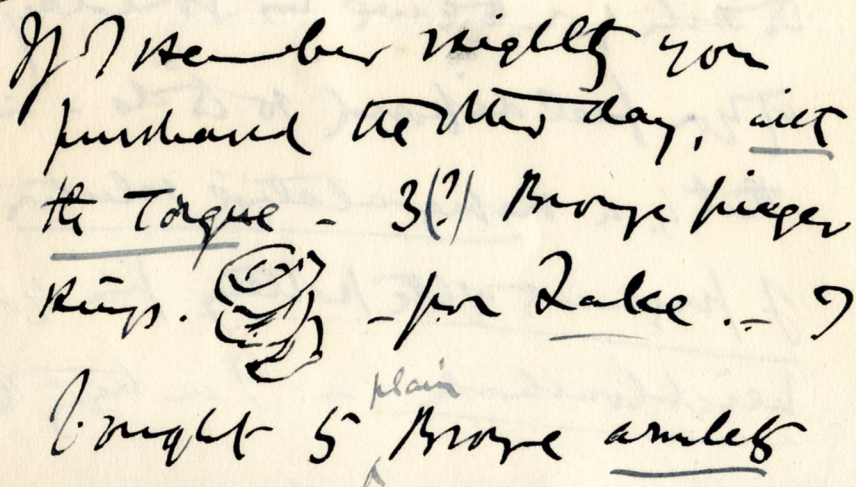 If I remember rightly you
purchased the other day, with
the Torque - 3(?) Bronze finger
rings. - for Lake. - I
bought 5 plain Bronze armlets